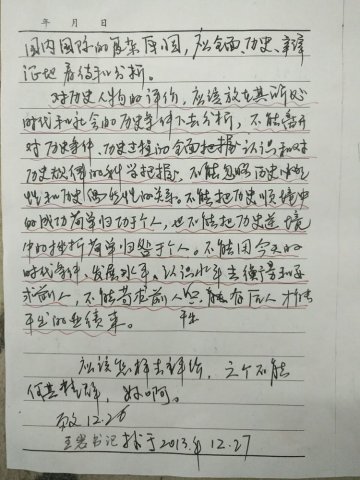 年 月 日
国内国际的复杂原因，应全面、历史、辩
证地看待和分析。
对历史人物的评价，应该放在其所处
时代和社会的历史条件下去分析，不能离开
对历史条件、历史过程的全面把握认识和对
历史规律的科学把握，不能忽略历史必然
性和历史偶然性的关系。不能把历史顺境中
的成功简单归功于个人，也不能把历史逆境
中的挫折简单归咎于个人。不能用今天的
时代条件、发展水平、认识水平去衡量和要
求前人，不能苛求前人 后人才
来。
应该怎样去评价，这个不能
好啊。
12.26
书记 于2013年12.27